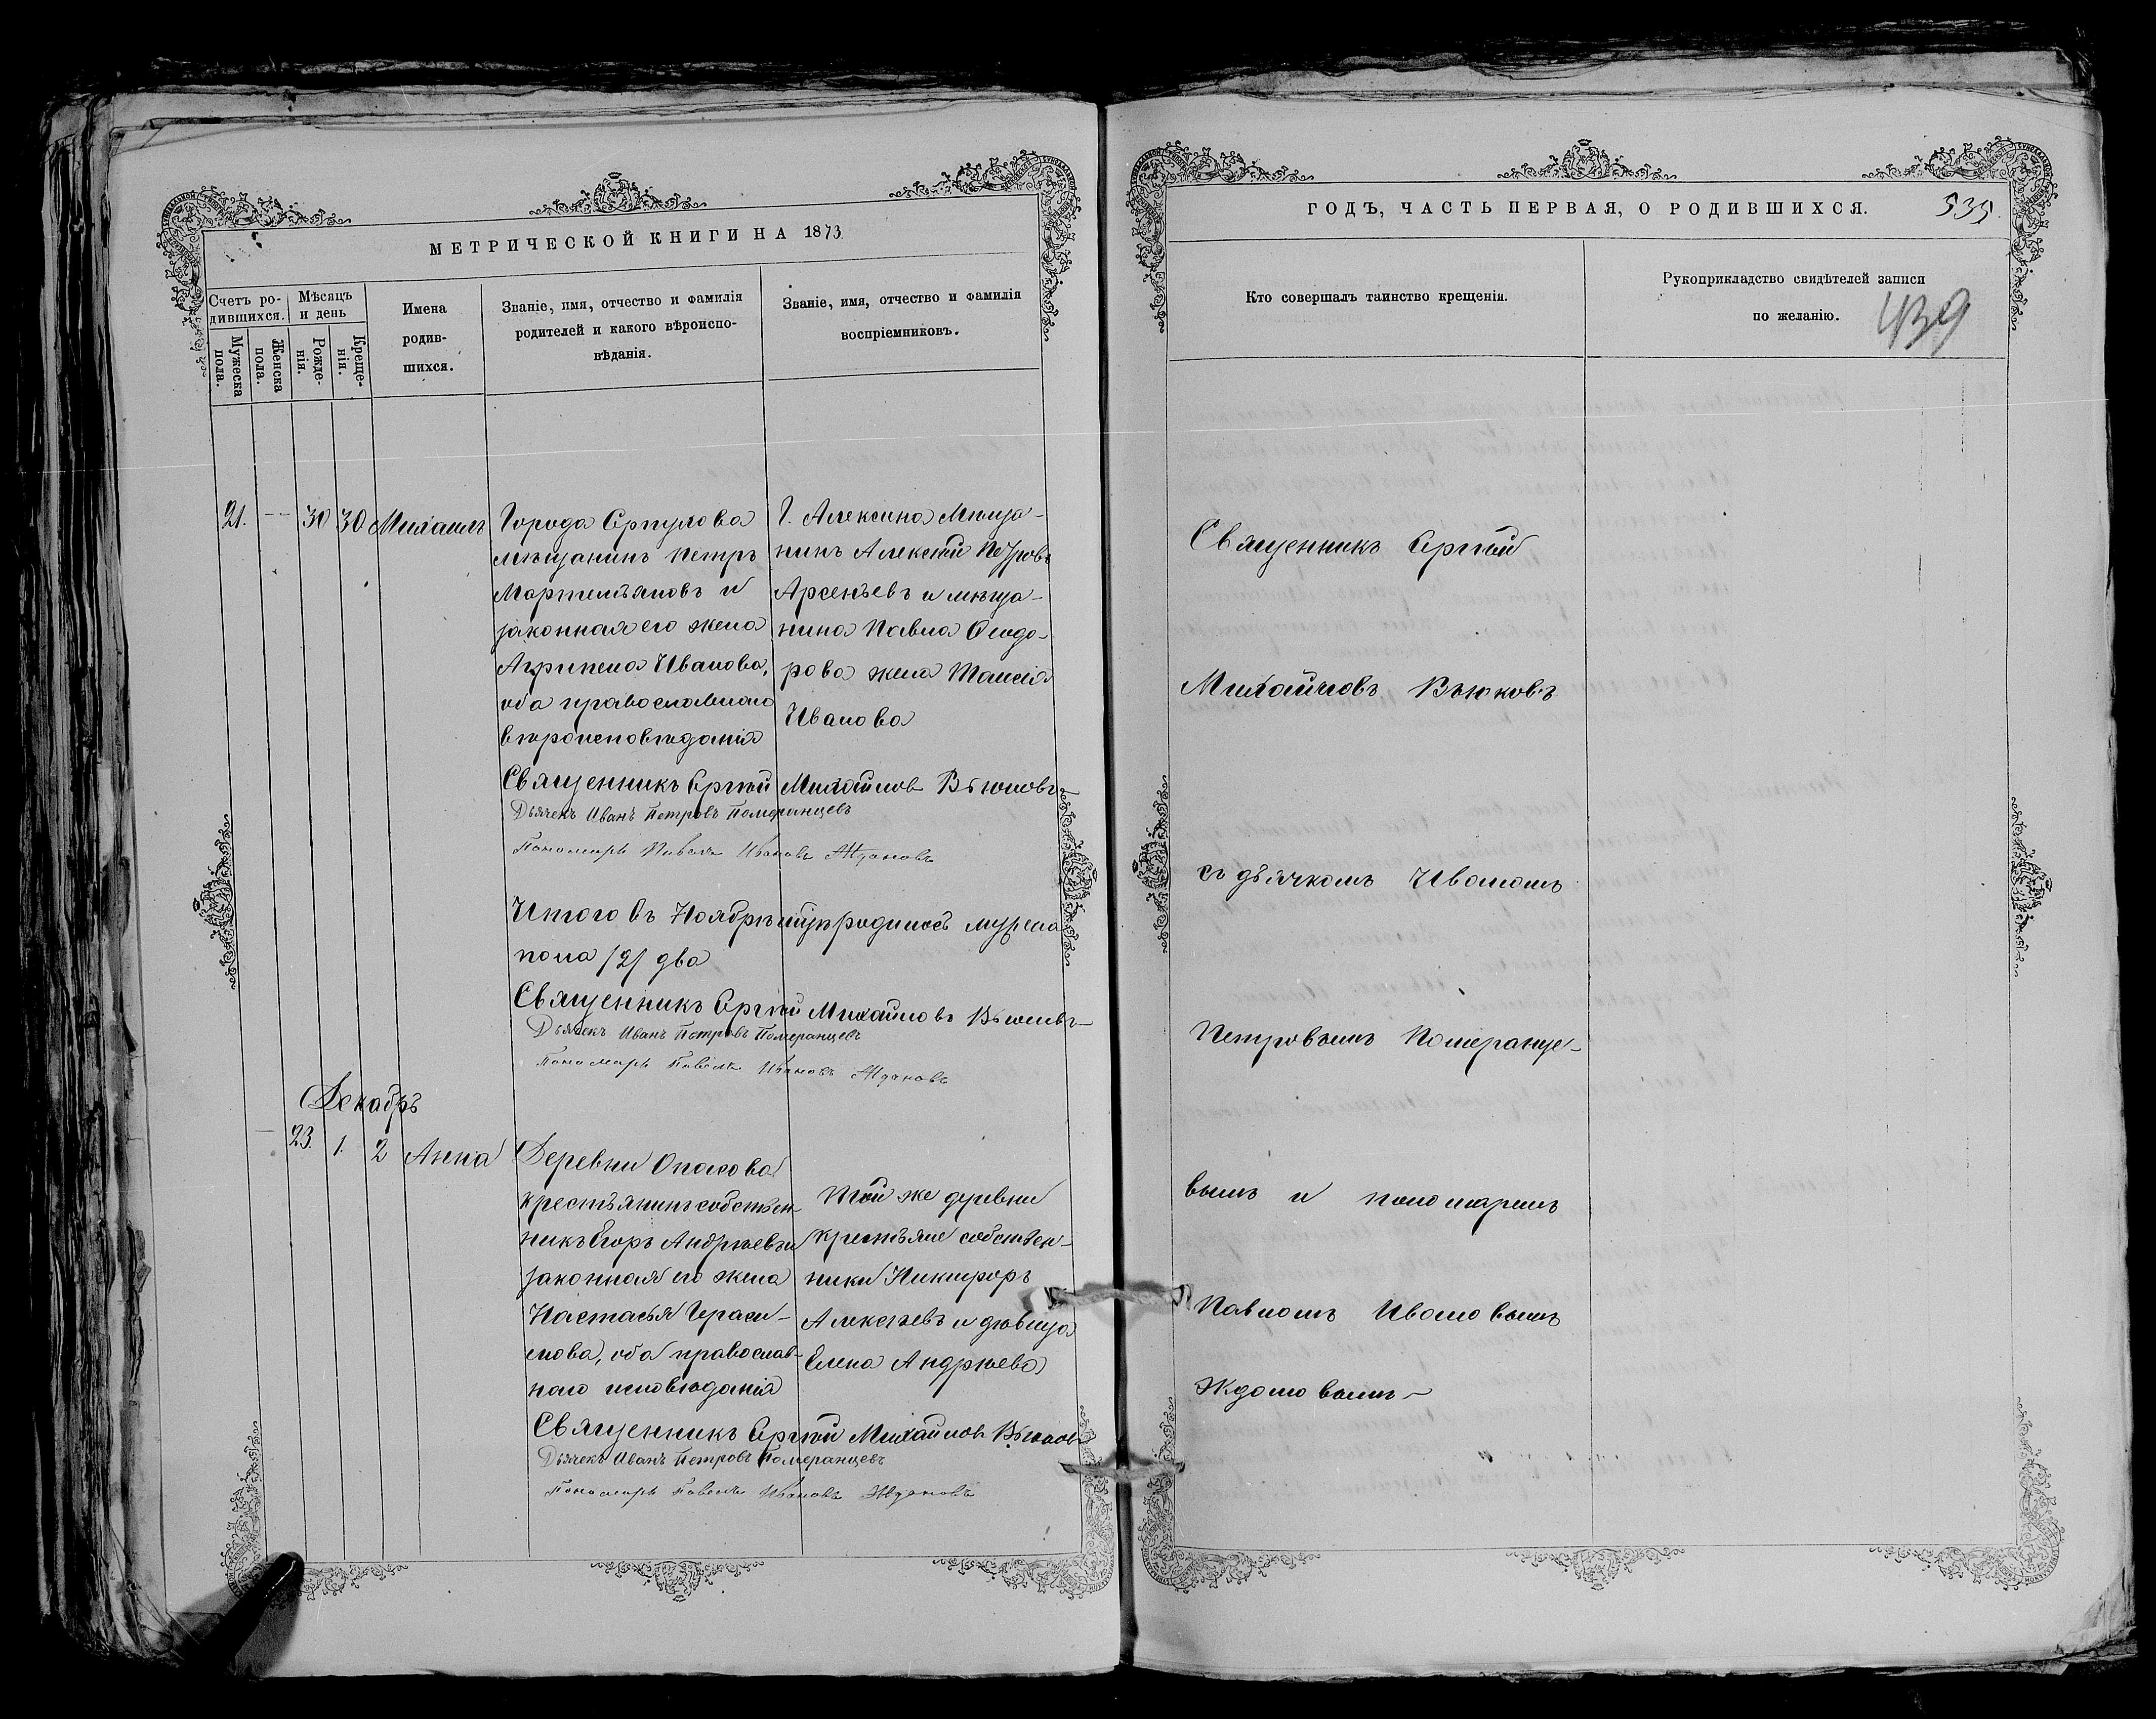 МЕТРИЧЕСКОЙ КНИГИ НА 1873
Счетъ ро-
дившихся.
Мѣсяцъ
и день
Мужеска
пола.
Женска
пола.
Рожде-
нія.
Креще-
нія.
Имена
родив-
шихся.
Званіе, имя, отчество и фамилія
родителей и какого вѣроиспо-
вѣданія.
Званіе, имя, отчество и фамилія
воспріемниковъ.
21. — 30 30 Михаилъ
Города Серпухова
мѣщанинъ Петръ
Мартемьяновъ и
законная его жена
Агрипена Иванова,
оба православнаго
вѣроисповѣданія
Г. Алексина Мѣща-
нинъ Алексѣй Петровъ
Арсеньевъ и мѣща-
нина Павла Ѳеодо-
рова жена Таисія
Иванова
Священникъ Сергій Михайловъ Вьюковъ
Дьячекъ Иванъ Петровъ Померанцевъ
Пономарь Павелъ Ивановъ Ждановъ
Итого въ Ноябрѣ м-цѣ родилось мужеска
пола /2/ два
Священникъ Сергій Михайловъ Вьюковъ
Дьячекъ Иванъ Петровъ Померанцевъ
Пономарь Павелъ Ивановъ Ждановъ
Декабрь
— 23. 1. 2 Анна
Деревни
крестьянинъ собствен-
никъ Егоръ Андреевъ и
законная его жена
Настасья Гераси-
мова, оба православ-
наго исповѣданія
Той же деревни
крестьяне собствен-
ники Никифоръ
Алексѣевъ и дѣвица
Елена Андреева
Священникъ Сергій Михайловъ Вьюковъ
Дьячекъ Иванъ Петровъ Померанцевъ
Пономарь Павелъ Ивановъ Ждановъ
ГОДЪ, ЧАСТЬ ПЕРВАЯ, О РОДИВШИХСЯ.
535.
Кто совершалъ таинство крещенія.
Рукоприкладство свидѣтелей записи
по желанію.
439
Священникъ Сергій
Михайловъ Вьюковъ
съ дьячкомъ Иваномъ
Петровымъ Померанце-
вымъ и пономаремъ
Павломъ Ивановымъ
Ждановымъ